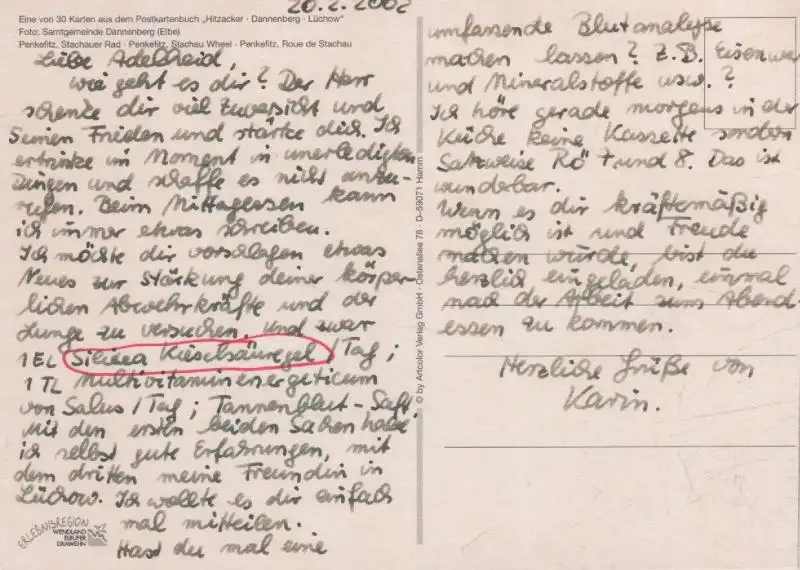 20.2.2002
Eine von 30 Karten aus dem Postkartenbuch „Hitzacker · Dannenberg · Lüchow"
Foto: Samtgemeinde Dannenberg (Elbe)
Penkefitz, Stachauer Rad · Penkefitz, Stachau Wheel · Penkefitz, Roue de Stachau
Liebe Adelheid,
wie geht es dir? Der Herr
schenke dir viel Zuversicht und
Seinen Frieden und stärke dich. Ich
ertrinke im Moment in unerledigten
Dingen und schaffe es nicht anzu-
rufen. Beim Mittagessen kann
ich immer etwas schreiben.
Ich möchte dir vorschlagen etwas
Neues zur Stärkung deiner körper-
lichen Abwehrkräfte und der
Lunge zu versuchen, und zwar
1 EL Silicea Kieselsäuregel / Tag ;
1 TL Multivitaminenergeticum
von Salus / Tag ; Tannenblut-Saft.
Mit den ersten beiden Sachen habe
ich selbst gute Erfahrungen, mit
dem dritten meine Freundin in
Lüchow. Ich wollte es dir einfach
mal mitteilen.
Hast du mal eine
ERLEBNISREGION
WENDLAND
ELBUFER
DRAWEHN
© by Artcolor Verlag GmbH · Ostenallee 78 · D-59071 Hamm
umfassende Blutanalyse
machen lassen? Z.B. Eisenwer
und Mineralstoffe usw. ?
Ich höre gerade morgens in der
Küche keine Kassette sondern
Satzweise Rö 7 und 8. Das ist
wunderbar.
Wenn es dir kräftemäßig
möglich ist und Freude
machen würde, bist du
herzlich eingeladen, einmal
nach der Arbeit zum Abend
essen zu kommen.
Herzliche Grüße von
Karin.